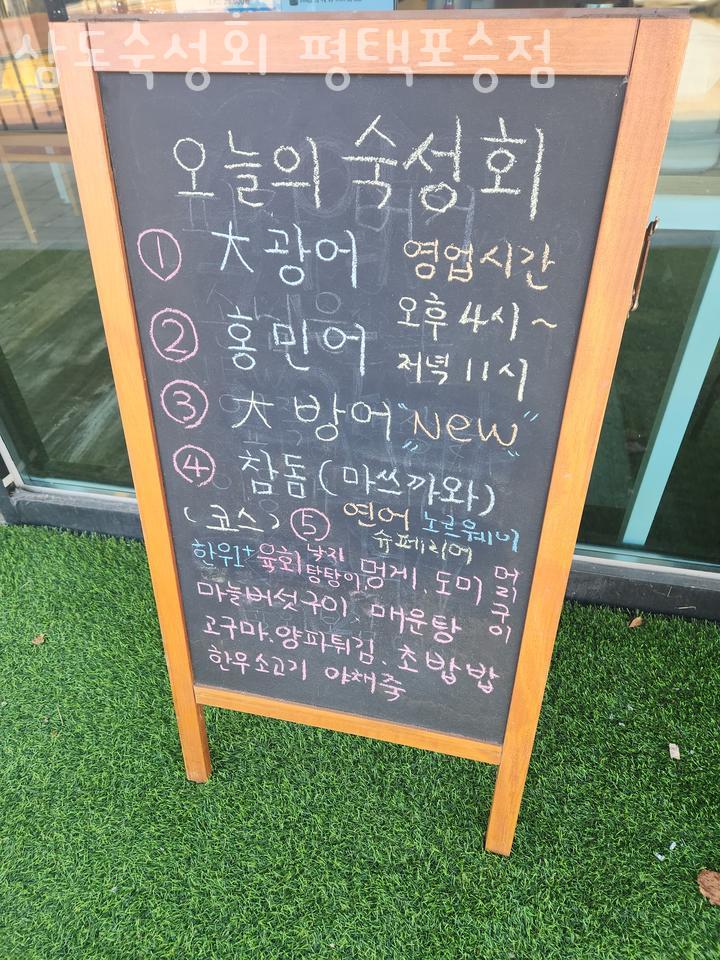 삼도숙성회 평택포승점
오늘의 숙성회
① 大광어
영업시간
② 홍민어
오후 4시~
저녁 11시
③ 大방어 "New"
④ 참돔(마쓰까와)
(코스) ⑤ 연어 노르웨이
슈페리어
한우1+ 육회 낙지 탕탕이 멍게. 도미 머리 구이
마늘버섯구이. 매운탕
고구마.양파튀김. 초밥밥
한우소고기 야채죽